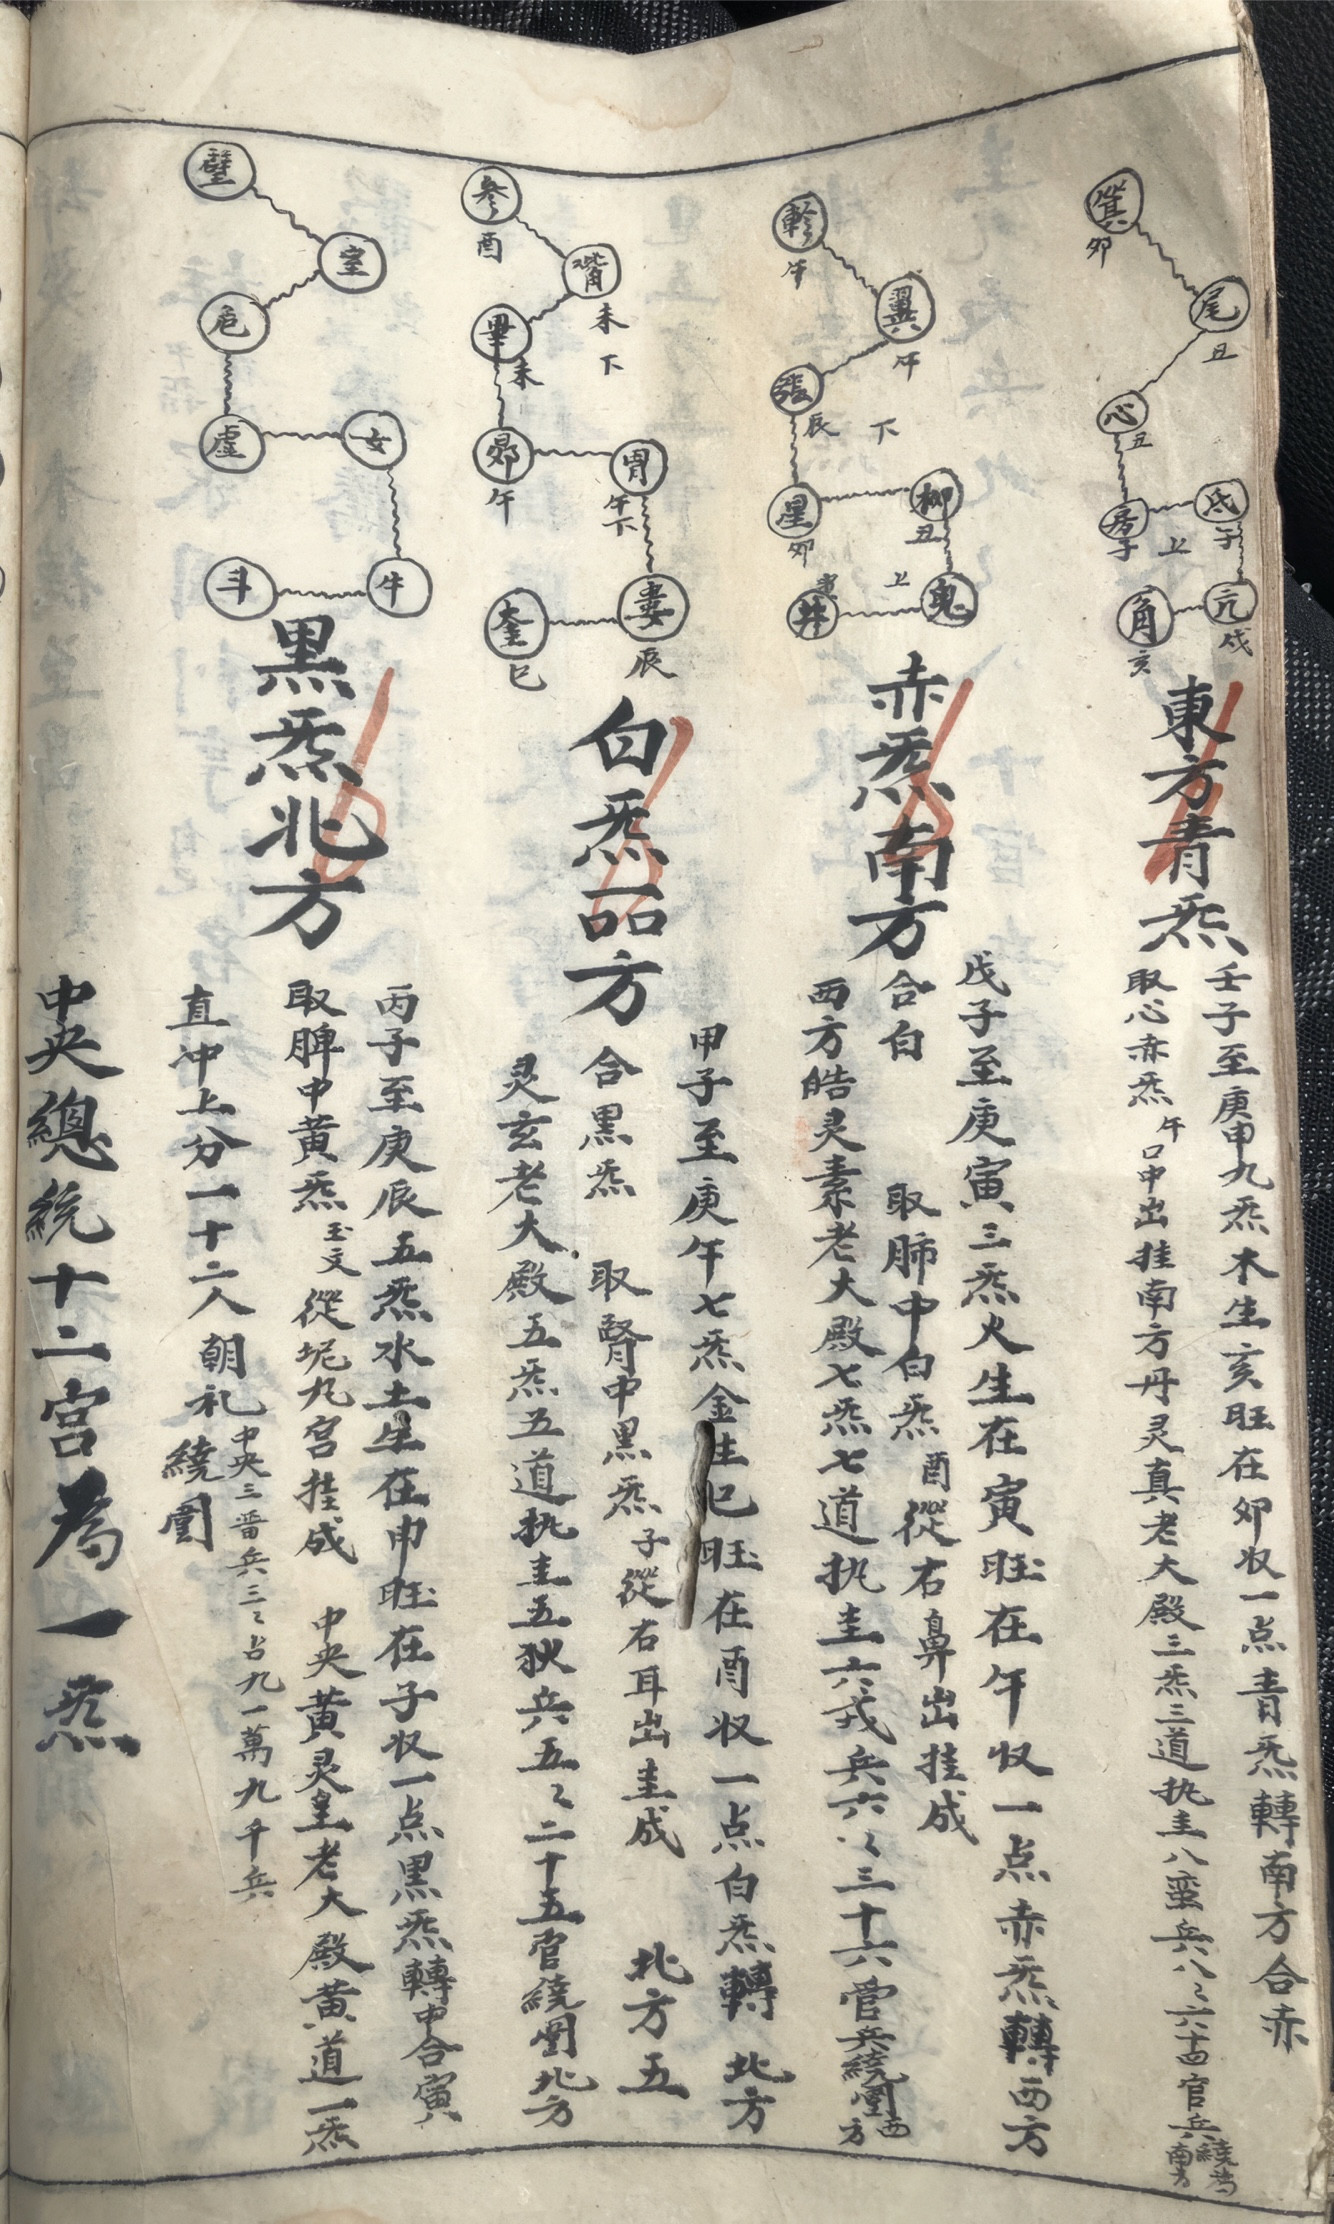 箕
卯
尾
丑
心
丑
房
子
氐
午
上
角
亥
亢
戌
東方青炁
壬子至庚申九炁木生亥旺在卯収一点青炁轉南方合赤
取心赤炁午口中出挂南方丹灵真老大殿三炁三道执圭八蛮兵八〻六十四官兵繞南方
軫
午
翼
午
張
辰
下
星
卯
柳
丑
井
鬼
上
赤炁南方
戊子至庚寅三炁火生在寅旺在午収一点赤炁轉西方
合白 取肺中白炁酉從右鼻出挂成
西方皓灵素老大殿七炁七道执圭六戎兵六〻三十六营兵繞圍西方
参
酉
觜
未
下
畢
未
昴
午
胃
午
下
奎
巳
婁
辰
白炁西方
甲子至庚午七炁金生巳旺在酉収一点白炁轉北方
合黒炁 取腎中黒炁子從右耳出圭成 北方五
灵玄老大殿五炁五道执圭五狄兵五〻二十五官繞圍北方
壁
室
危
虚
女
斗
牛
黒炁北方
丙子至庚辰五炁水土生在申旺在子収一点黒炁轉中合寅
取脾中黄炁玉文從坭九宫挂成 中央黄灵皇老大殿黄道一炁
直冲上分一十二人朝礼 中央三晋兵三〻占九一萬九千兵
繞圍
中央總統十二宫為一炁